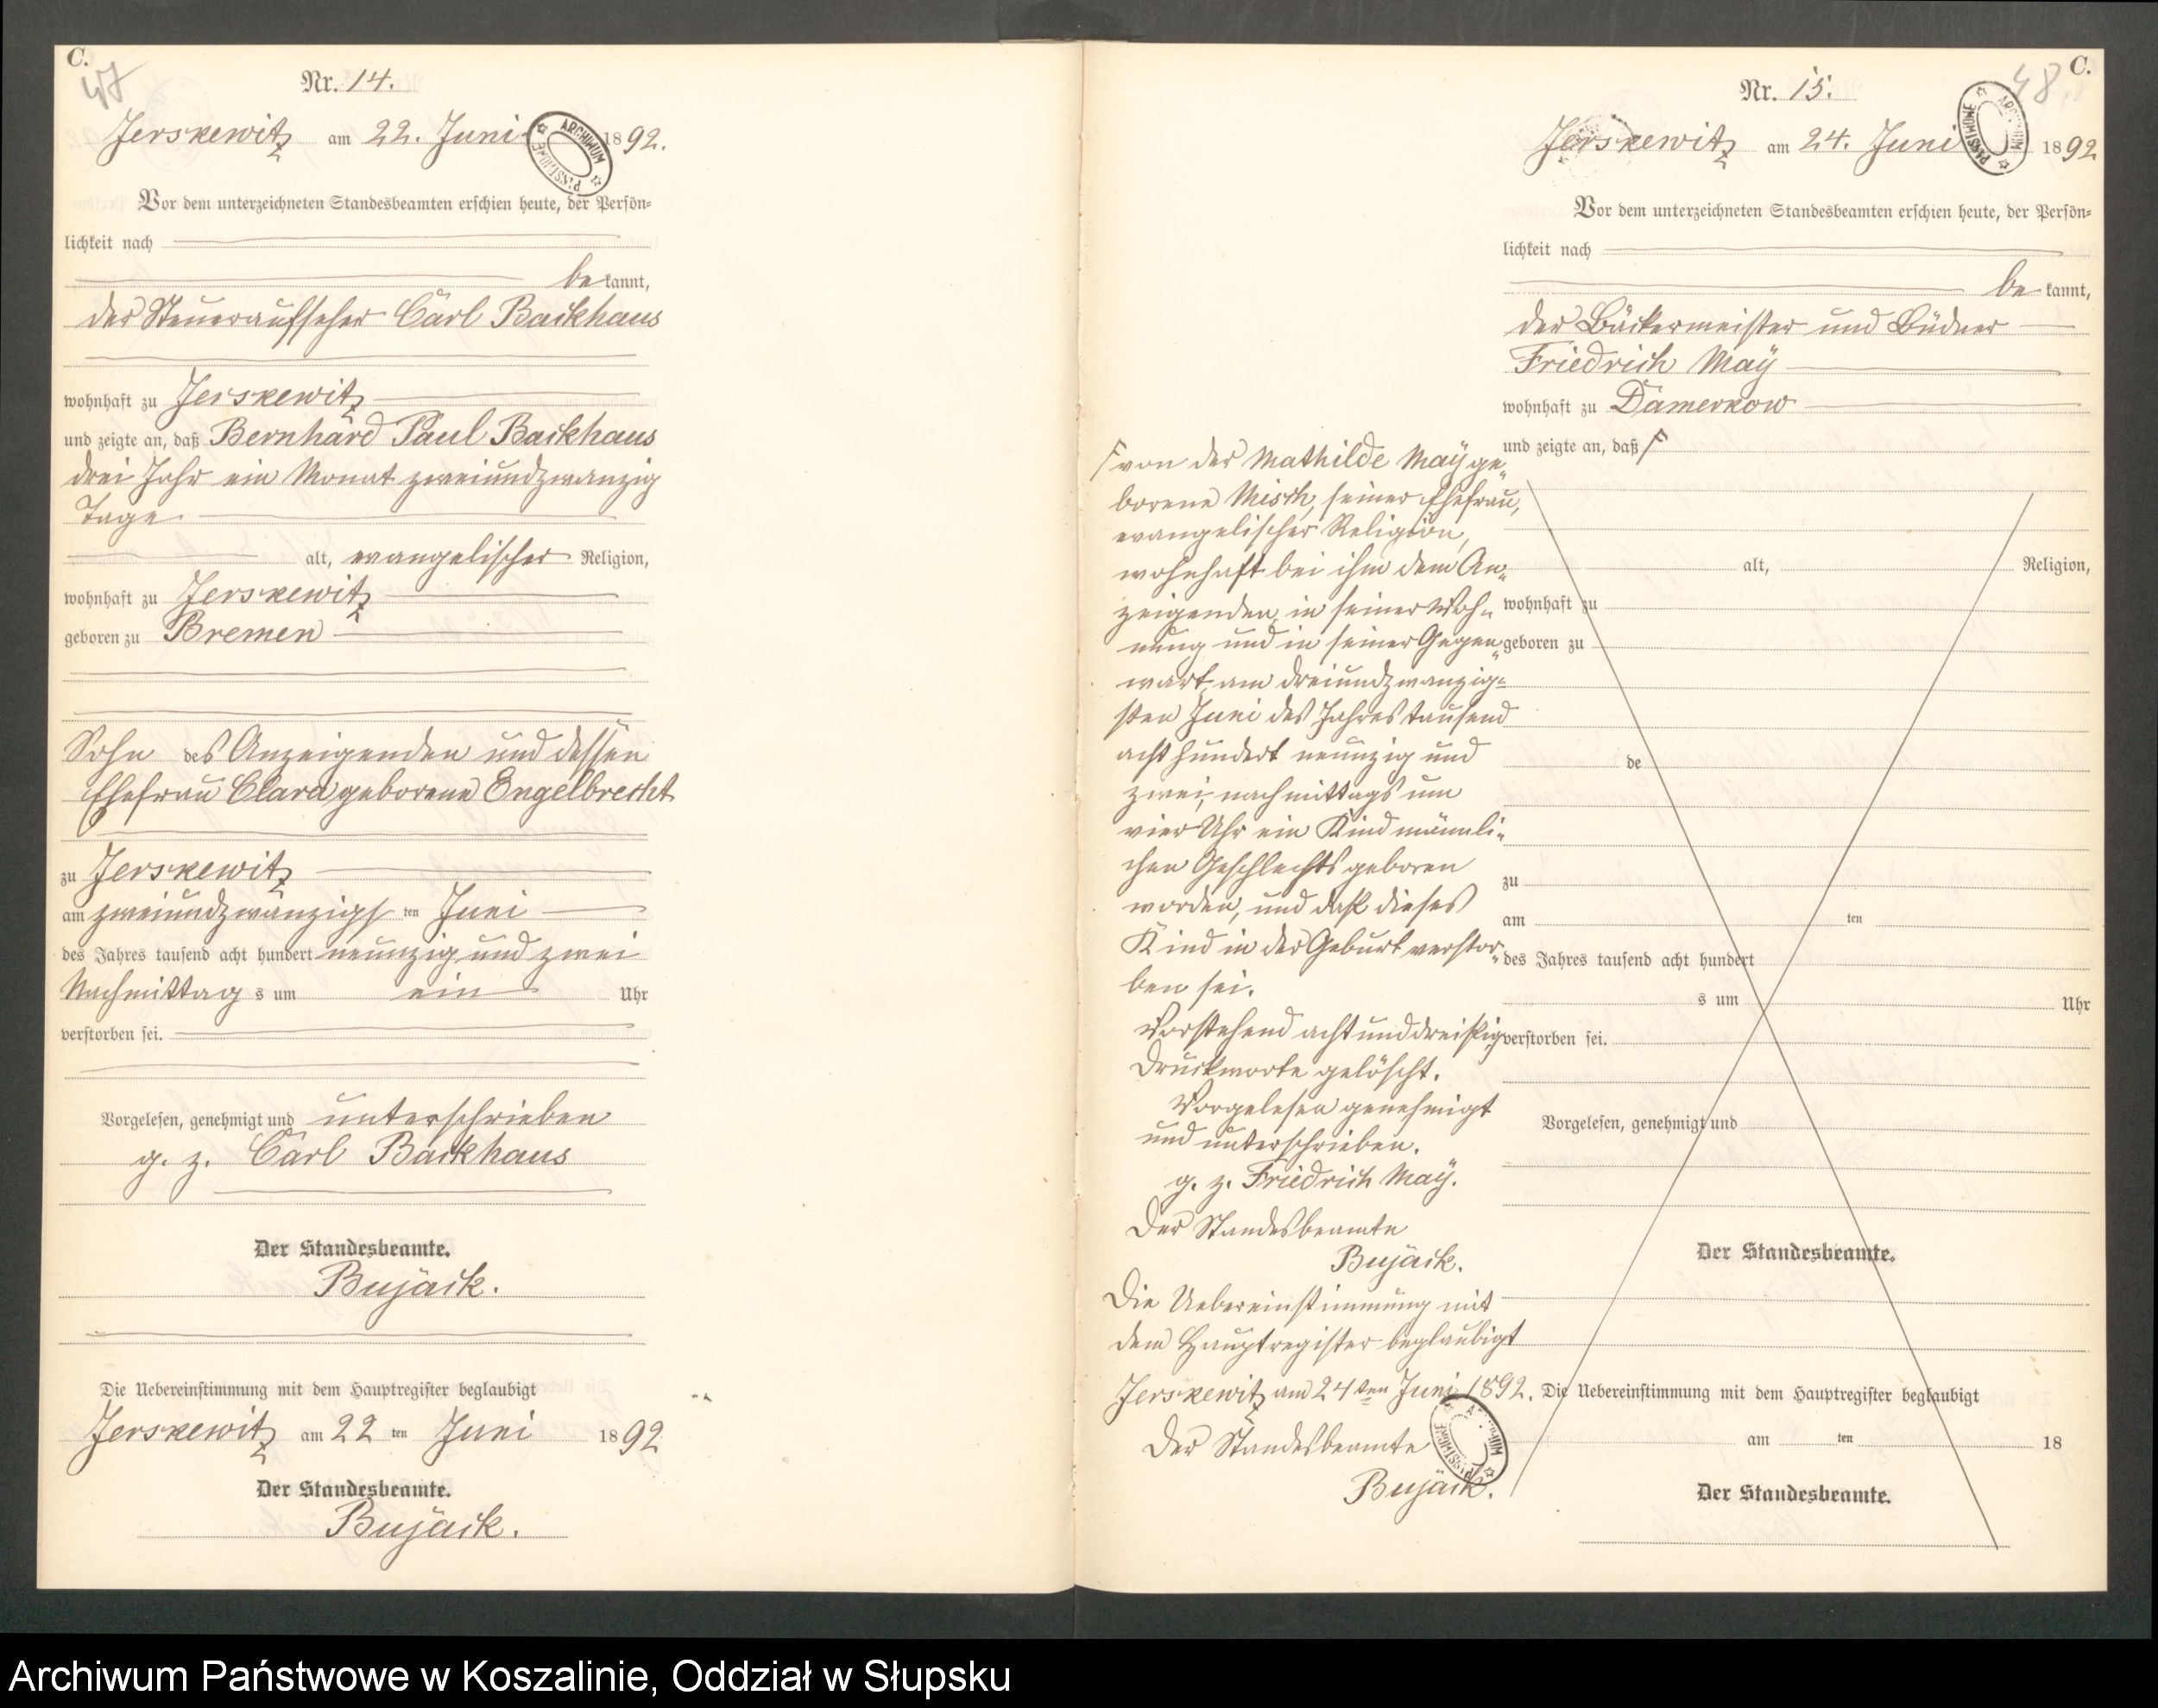 C.
47
Nr. 14.
Jerskewitz am 22. Juni 1892.
ARCHIWUM PAŃSTWOWE
Vor dem unterzeichneten Standesbeamten erschien heute, der Persön-
lichkeit nach
bekannt,
der Steueraufseher Carl Backhaus
wohnhaft zu Jerskewitz
und zeigte an, daß Bernhard Paul Backhaus
drei Jahr ein Monat zweiundzwanzig
Tage
alt, evangelischer Religion,
wohnhaft zu Jerskewitz
geboren zu Bremen
Sohn des Anzeigenden und dessen
Ehefrau Clara geborene Engelbrecht
zu Jerskewitz
am zweiundzwanzigsten Juni
des Jahres tausend acht hundert neunzig und zwei
Nachmittags um ein Uhr
verstorben sei.
Vorgelesen, genehmigt und unterschrieben
g. z. Carl Backhaus
Der Standesbeamte.
Bujack.
Die Uebereinstimmung mit dem Hauptregister beglaubigt
Jerskewitz am 22 ten Juni 1892
Der Standesbeamte.
Bujack.
C.
48
Nr. 15.
Jerskewitz am 24. Juni 1892
ARCHIWUM PAŃSTWOWE
Vor dem unterzeichneten Standesbeamten erschien heute, der Persön-
lichkeit nach
bekannt,
der Bäckermeister und Büdner
Friedrich May
wohnhaft zu Damerkow
und zeigte an, daß
von der Mathilde May ge-
borene Misch, seiner Ehefrau,
evangelischer Religion,
wohnhaft bei ihm dem An-
zeigenden in seiner Woh-
nung und in seiner Gegen-
wart, am dreiundzwanzig-
sten Juni des Jahres tausend
acht hundert neunzig und
zwei, nachmittags um
vier Uhr ein Kind männli-
chen Geschlechts geboren
worden, und daß dieses
Kind in der Geburt verstor-
ben sei.
Vorstehend achtunddreißig
Druckworte gelöscht.
Vorgelesen genehmigt
und unterschrieben.
g. z. Friedrich May.
Der Standesbeamte
Bujack.
Die Uebereinstimmung mit
dem Hauptregister beglaubigt
Jerskewitz am 24ten Juni 1892.
Der Standesbeamte
Bujack.
ARCHIWUM PAŃSTWOWE
alt, Religion,
wohnhaft zu
geboren zu
de
zu
am ten
des Jahres tausend acht hundert
s um Uhr
verstorben sei.
Vorgelesen, genehmigt und
Der Standesbeamte.
Die Uebereinstimmung mit dem Hauptregister beglaubigt
am ten 18
Der Standesbeamte.
Archiwum Państwowe w Koszalinie, Oddział w Słupsku